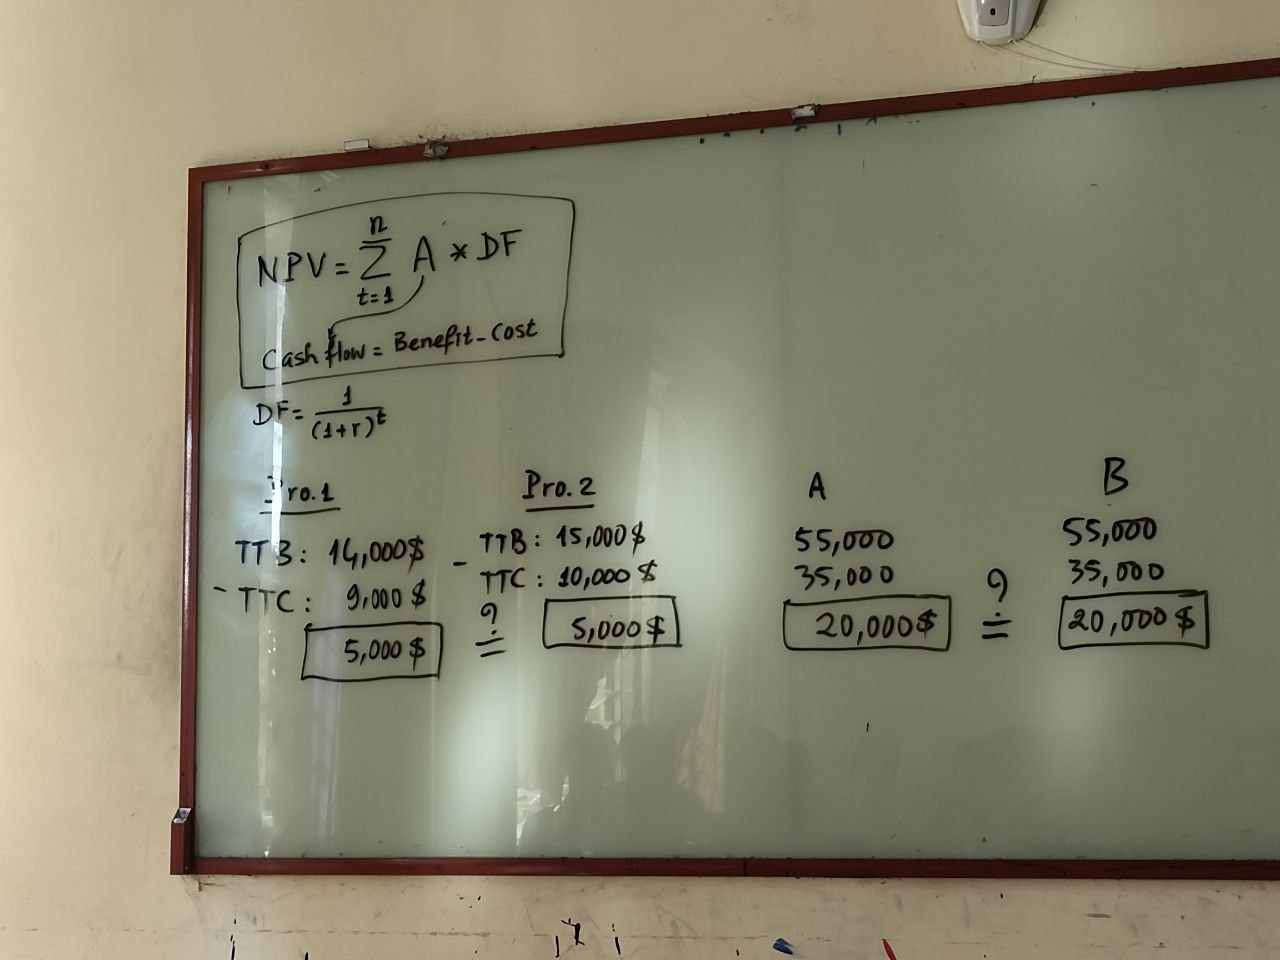 NPV = n Σ t=1 A * DF
Cash flow = Benefit - Cost
DF = 1/(1+r)^t
Pro.1
TTB: 14,000$
- TTC: 9,000$
5,000$
?
=
Pro.2
- TTB: 15,000$
TTC: 10,000$
5,000$
A
55,000
35,000
20,000$
?
=
B
55,000
35,000
20,000$